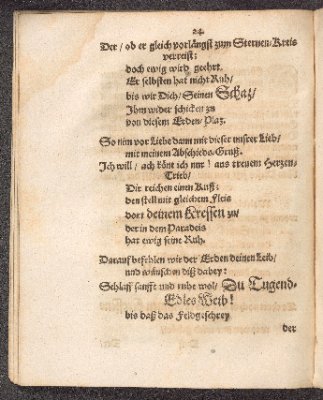 24.
Der / ob er gleich vorlängst zum Sternen-Kreis
verreist:
doch ewig wird geehrt.
Er selbsten hat nicht Ruh /
bis wir Dich / Seinen Schaz /
Ihm wider schicken zu
von diesem Erden-Plaz.
So nim vor Liebe dann mit dieser unsrer Lieb /
mit meinem Abschieds-Gruß.
Ich will / ach könt ich nur! aus treuem Herzen-
Trieb /
Dir reichen einen Kuß:
den stell mit gleichem Fleis
dort deinem Kressen zu /
der in dem Paradeis
hat ewig seine Ruh.
Darauf befehlen wir der Erden deinen Leib /
und wünschen diß dabey:
Schlaff sanfft und ruhe wol / Du Tugend-
Edles Weib!
bis daß das Feldgeschrey
der